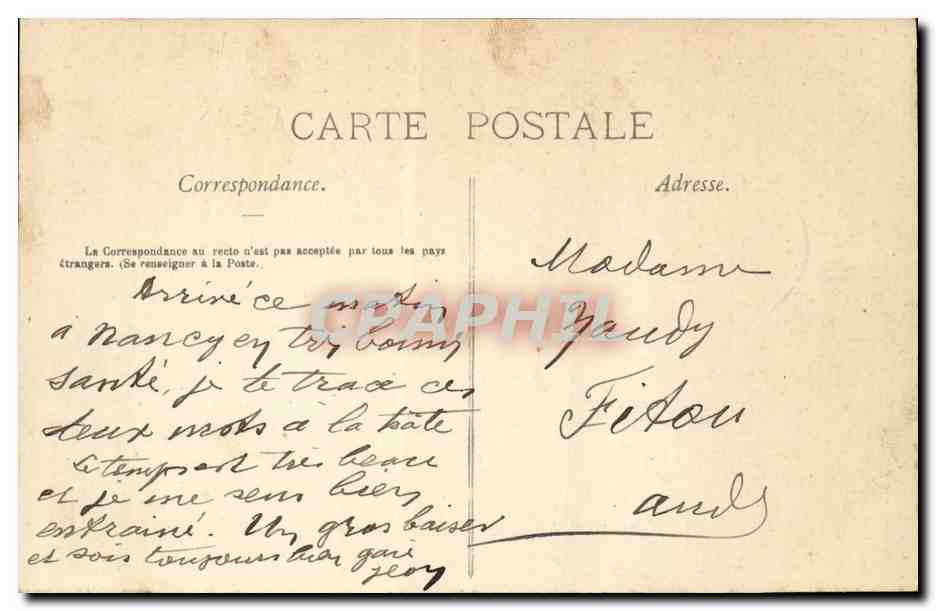 CARTE POSTALE
Correspondance.
Adresse.
La Correspondance au recto n'est pas acceptée par tous les pays
étrangers. (Se renseigner à la Poste.
Arrivé ce matin
à Nancy en très bonne
santé, je te trace ces
deux mots à la hâte
Le temps est très beau
et je me sens bien
entrainé. Un gros baiser
et sois toujours bien gaie
Jean
Madame
Fitou
Aude
CPAPHIL